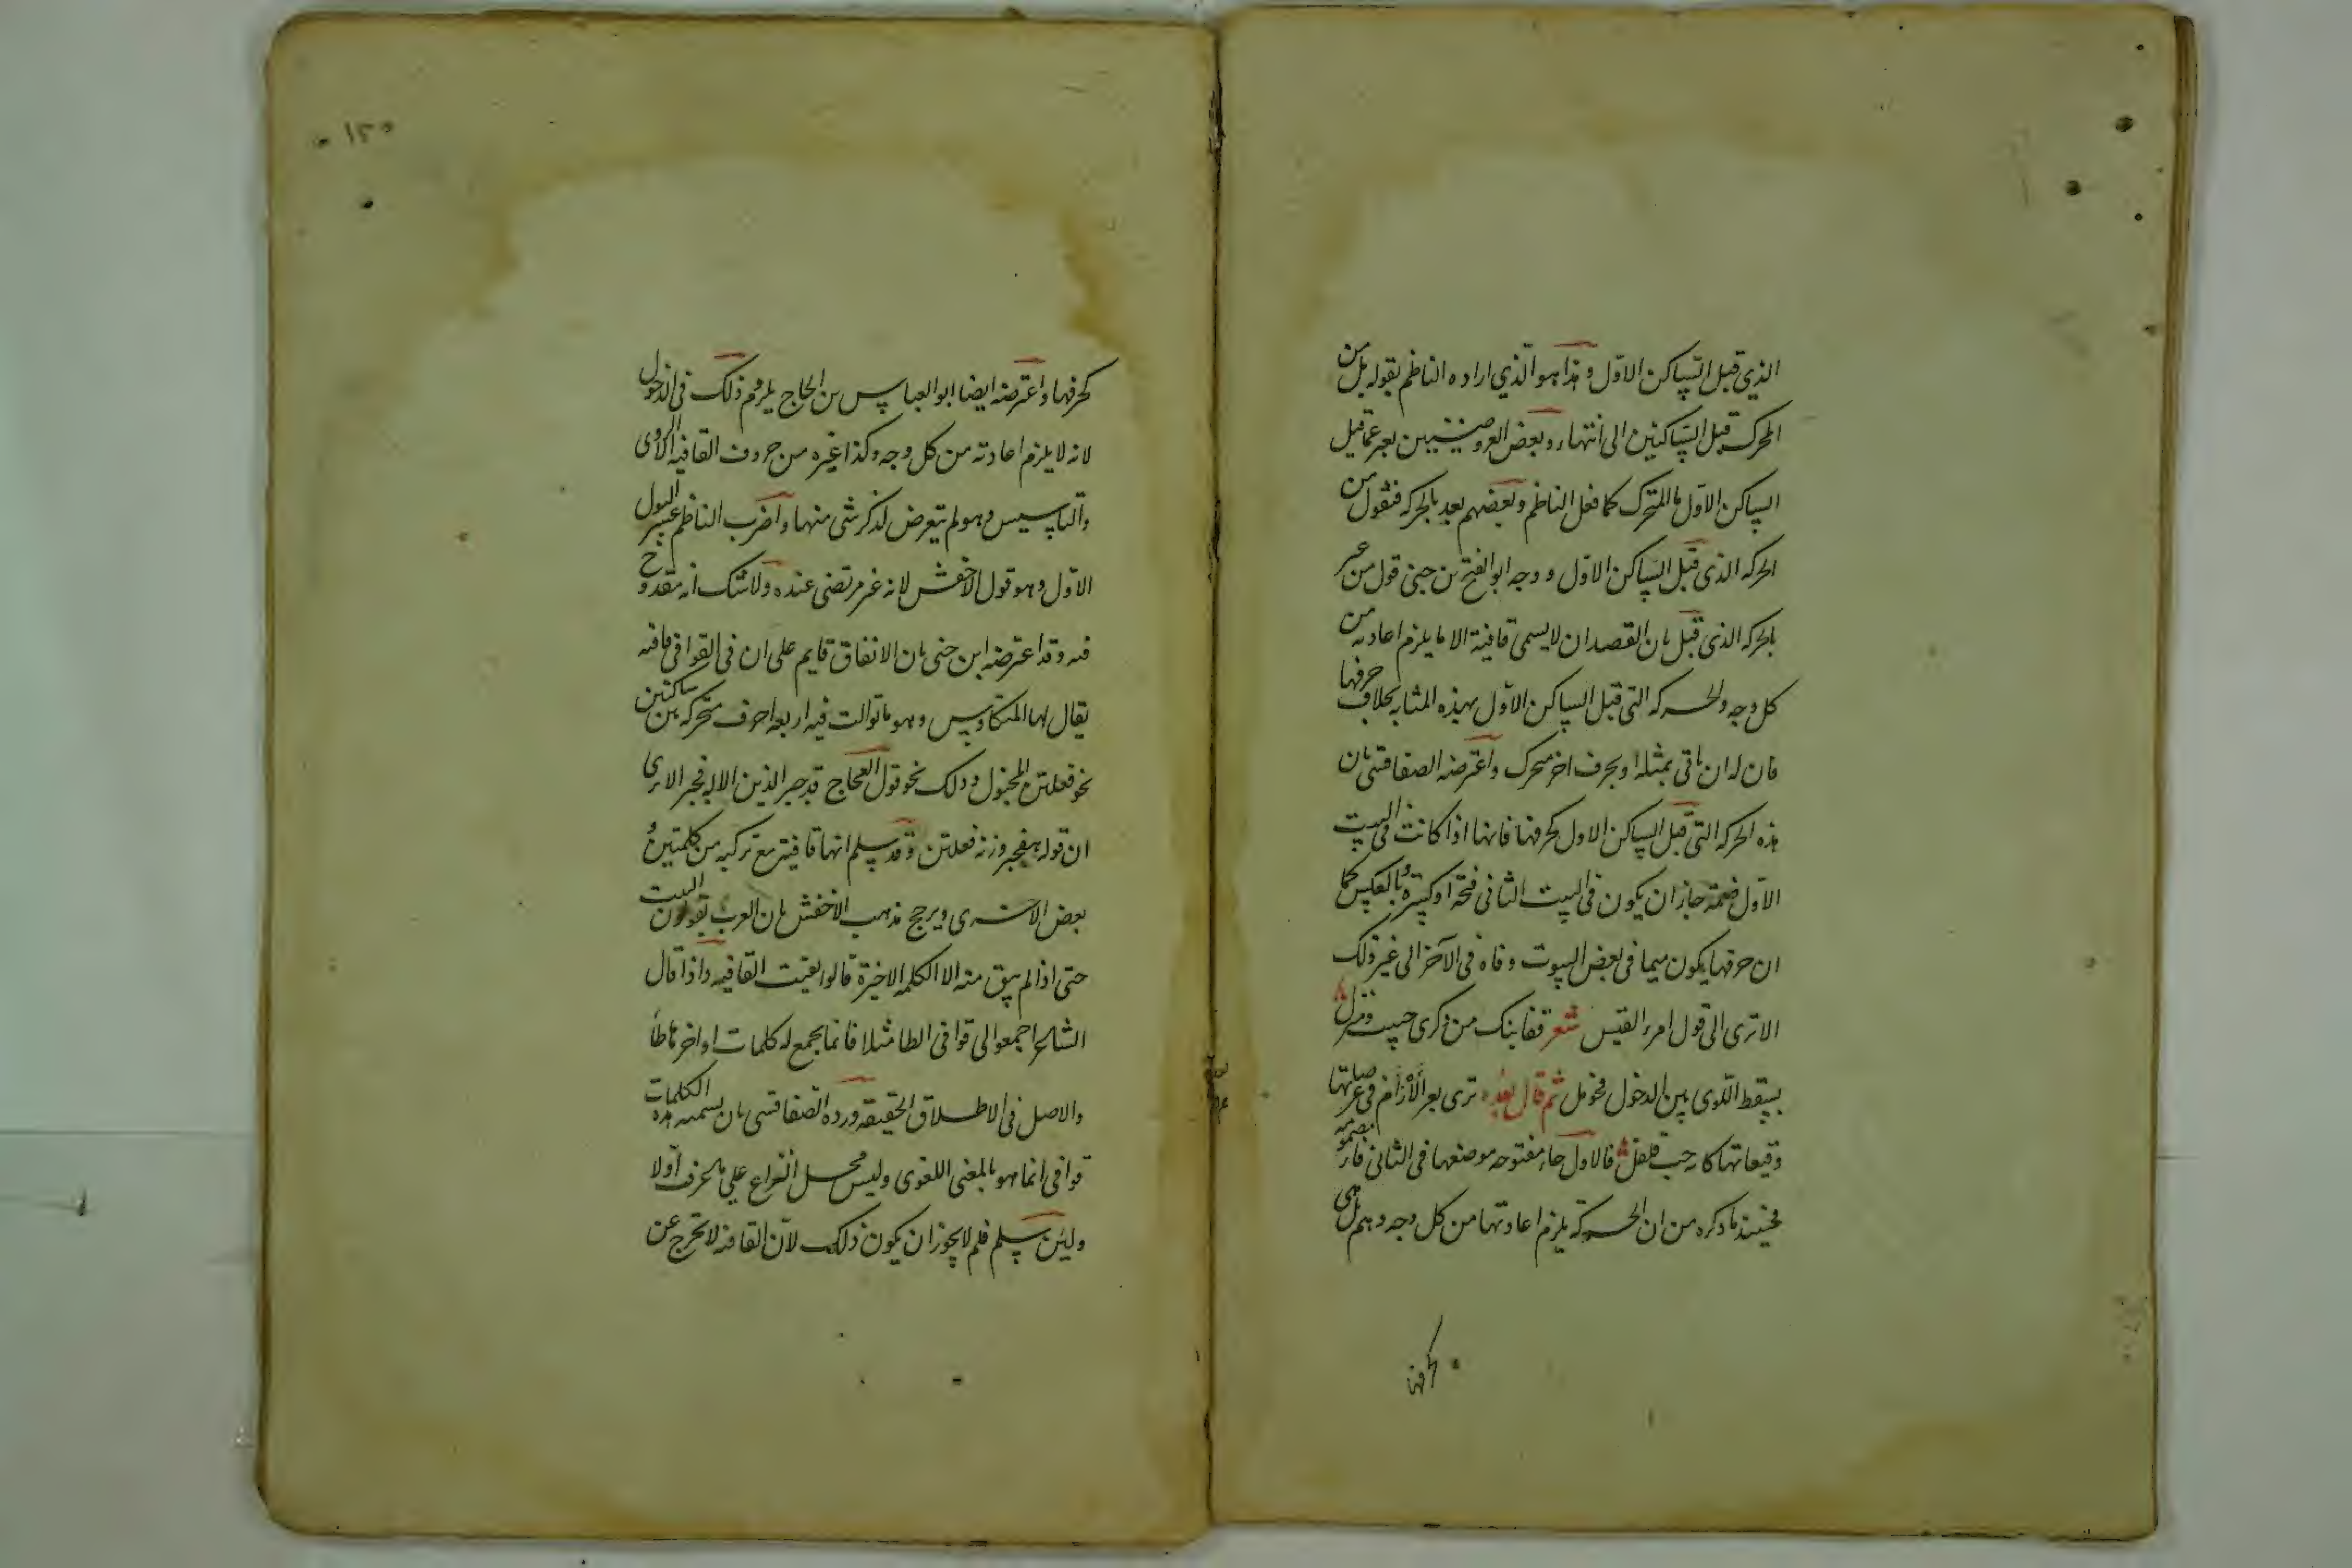 الذي قبل الساكن الاول وهذا هو الذي اراده الناظم بقوله بل من
المحرك قبل الساكنين الى انتهاء وبعض العروضيين يعبر عما قبل
الساكن الاول بالمتحرك كما فعل الناظم وبعضهم يعبر بالحركه فتقول من
الحركه الذي قبل الساكن الاول ووجه ابو الفتح بن جنى قول من عبر
بالحركه الذى قبل بان القصد ان لا يسمى قافية الا ما يلزم اعادته من
كل وجه والحركه التى قبل الساكن الاول بهذه المثابه بخلاف حرفها
فان له ان ياتى بمثله او بحرف اخر متحرك واعترضه الصفاقسى بان
هذه الحركه التى قبل الساكن الاول كحرفها فانها اذا كانت فى البيت
الاول ضمة جاز ان يكون فى البيت الثانى فتحة او كسرة وبالعكس كما
ان حرفها يكون ميما فى بعض البيوت وفاء فى الآخر الى غير ذلك
الا ترى الى قول امرء القيس شعر قفا نبك من ذكرى حبيب ومنزل
بسقط اللوى بين الدخول فحومل ثم قال بعده ترى بعر الأرآم فى عرصاتها
وقيعانها كانه حب فلفل فالاول حاء مفتوحه موضعها فى الثانى فاء مضمومه
فحينئذ ما ذكره من ان الحركة يلزم اعادتها من كل وجه وهم بل هى
كحرفها
١٥٠
كحرفها واعترضه ايضا ابو العباس بن الحاج يلزوم ذلك فى الدخول
لانه لا يلزم اعادته من كل وجه وكذا غيره من حروف القافيه الا الروى
والتاسيس وهو لم يتعرض لذكر شى منها واضرب الناظم عن القول
الاول وهو قول الاخفش لانه غير مرتضى عنده ولا شك انه مقدوح
فيه وقد اعترضه ابن جنى بان الاتفاق قايم على ان فى القوافى قافيه
يقال لها المتكاوس وهو ما توالت فيه اربعه احرف متحركه بين ساكنين
نحو فعلتن المخبول وذلك نحو قول العجاج قد جبر الدين الاله فجبر الا ترى
ان قوله هفجبر وزنه فعلتن وقد سلم انها قافيه مع تركبه من كلمتين و
بعض الاخرى ويرجح مذهب الاخفش بان العرب يقولون البيت
حتى اذا لم يبق منه الا الكلمه الاخيرة قالوا بقيت القافيه واذا قال
الشاعر اجمعوا لى قوافى الطا مثلا فانما يجمع له كلمات اواخرها طأ
والاصل فى الاطلاق الحقيقه ورده الصفاقسى بان تسميه هذه الكلمات
قوافى انما هو بالمعنى اللغوى وليس محل النزاع على ما تحرف اولا
ولئن سلم فلم لا يجوز ان يكون ذلك لان القافيه لا تخرج عن